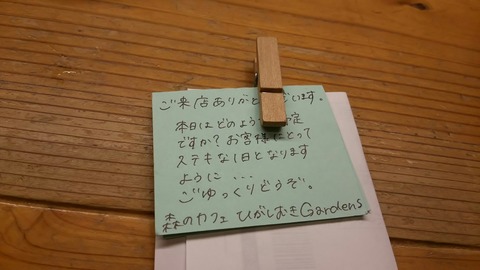 ご来店ありがとございます。
本日はどのよう 定
ですか?お客様にとって
ステキな1日となります
ように...
ごゆっくりどうぞ。
森のカフェ ひがしむきGardens